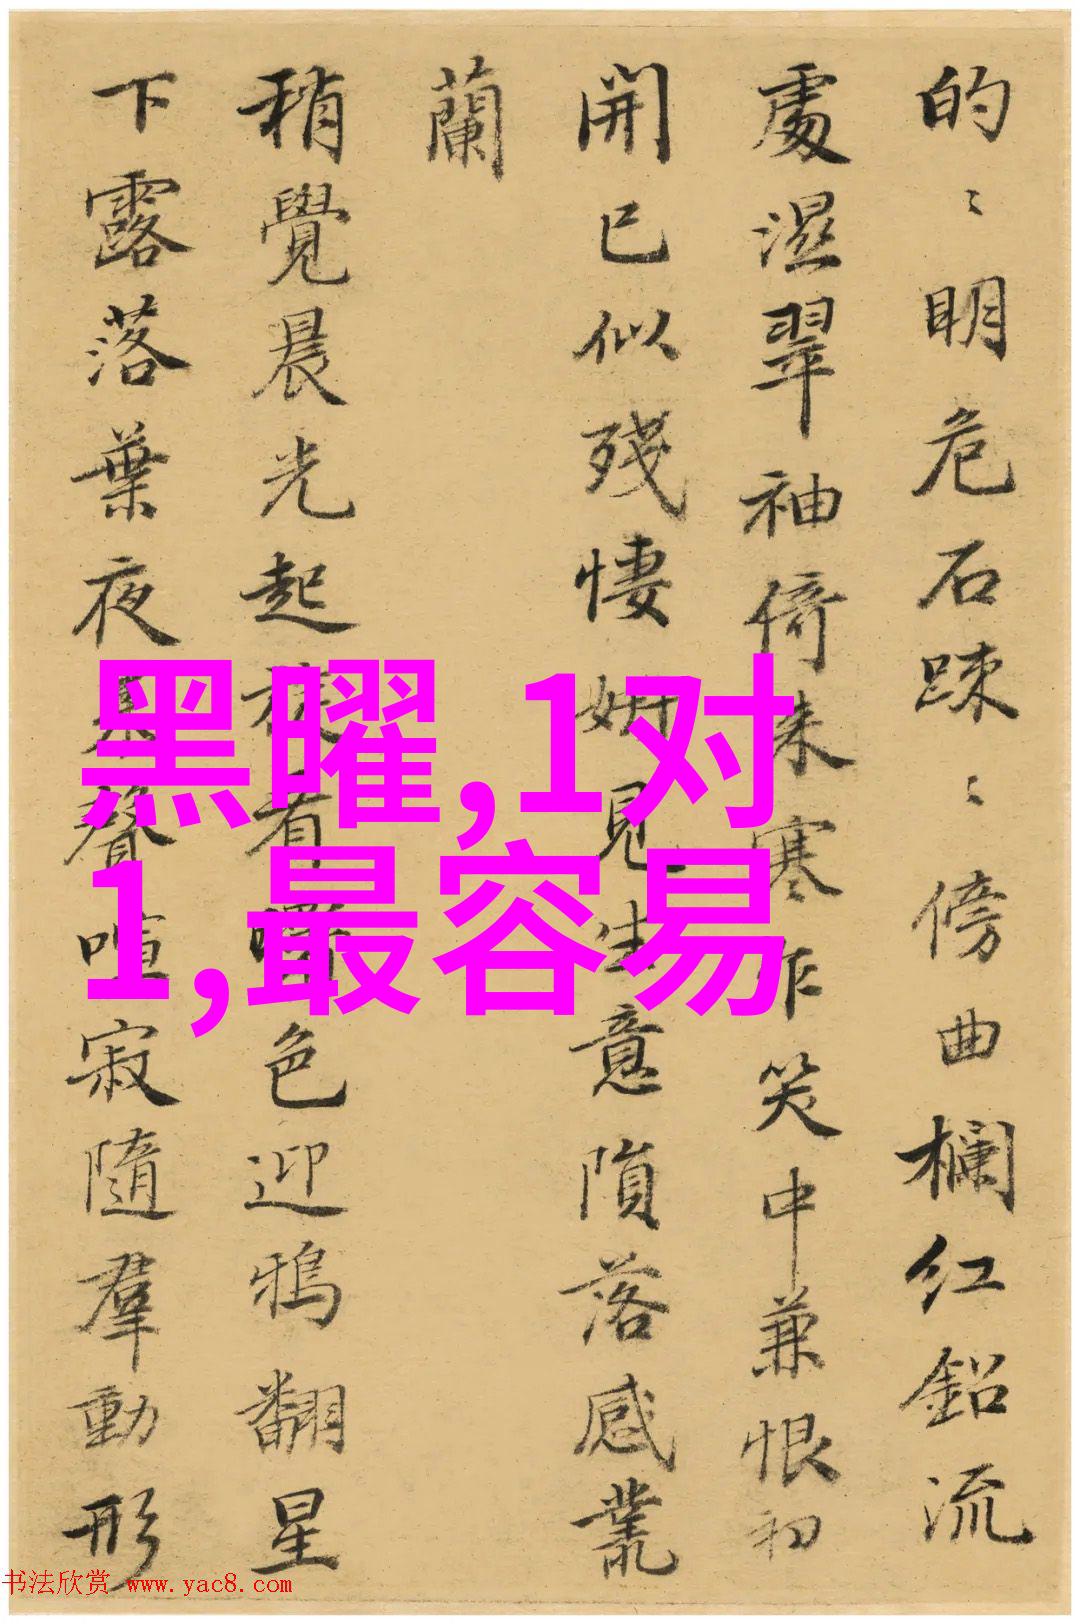 的〻明危石踈〻傍曲欄红鈆流
處濕翠袖倚来寒乍笑中兼恨初
開已似殘悽妍見生意隕落感叢
蘭
稍覺晨光起
有
色迎鴉翻星
下露落葉夜
聲喧寂隨羣動形
黑曜,1对
1,最容易
书法欣赏 www.yac8.com